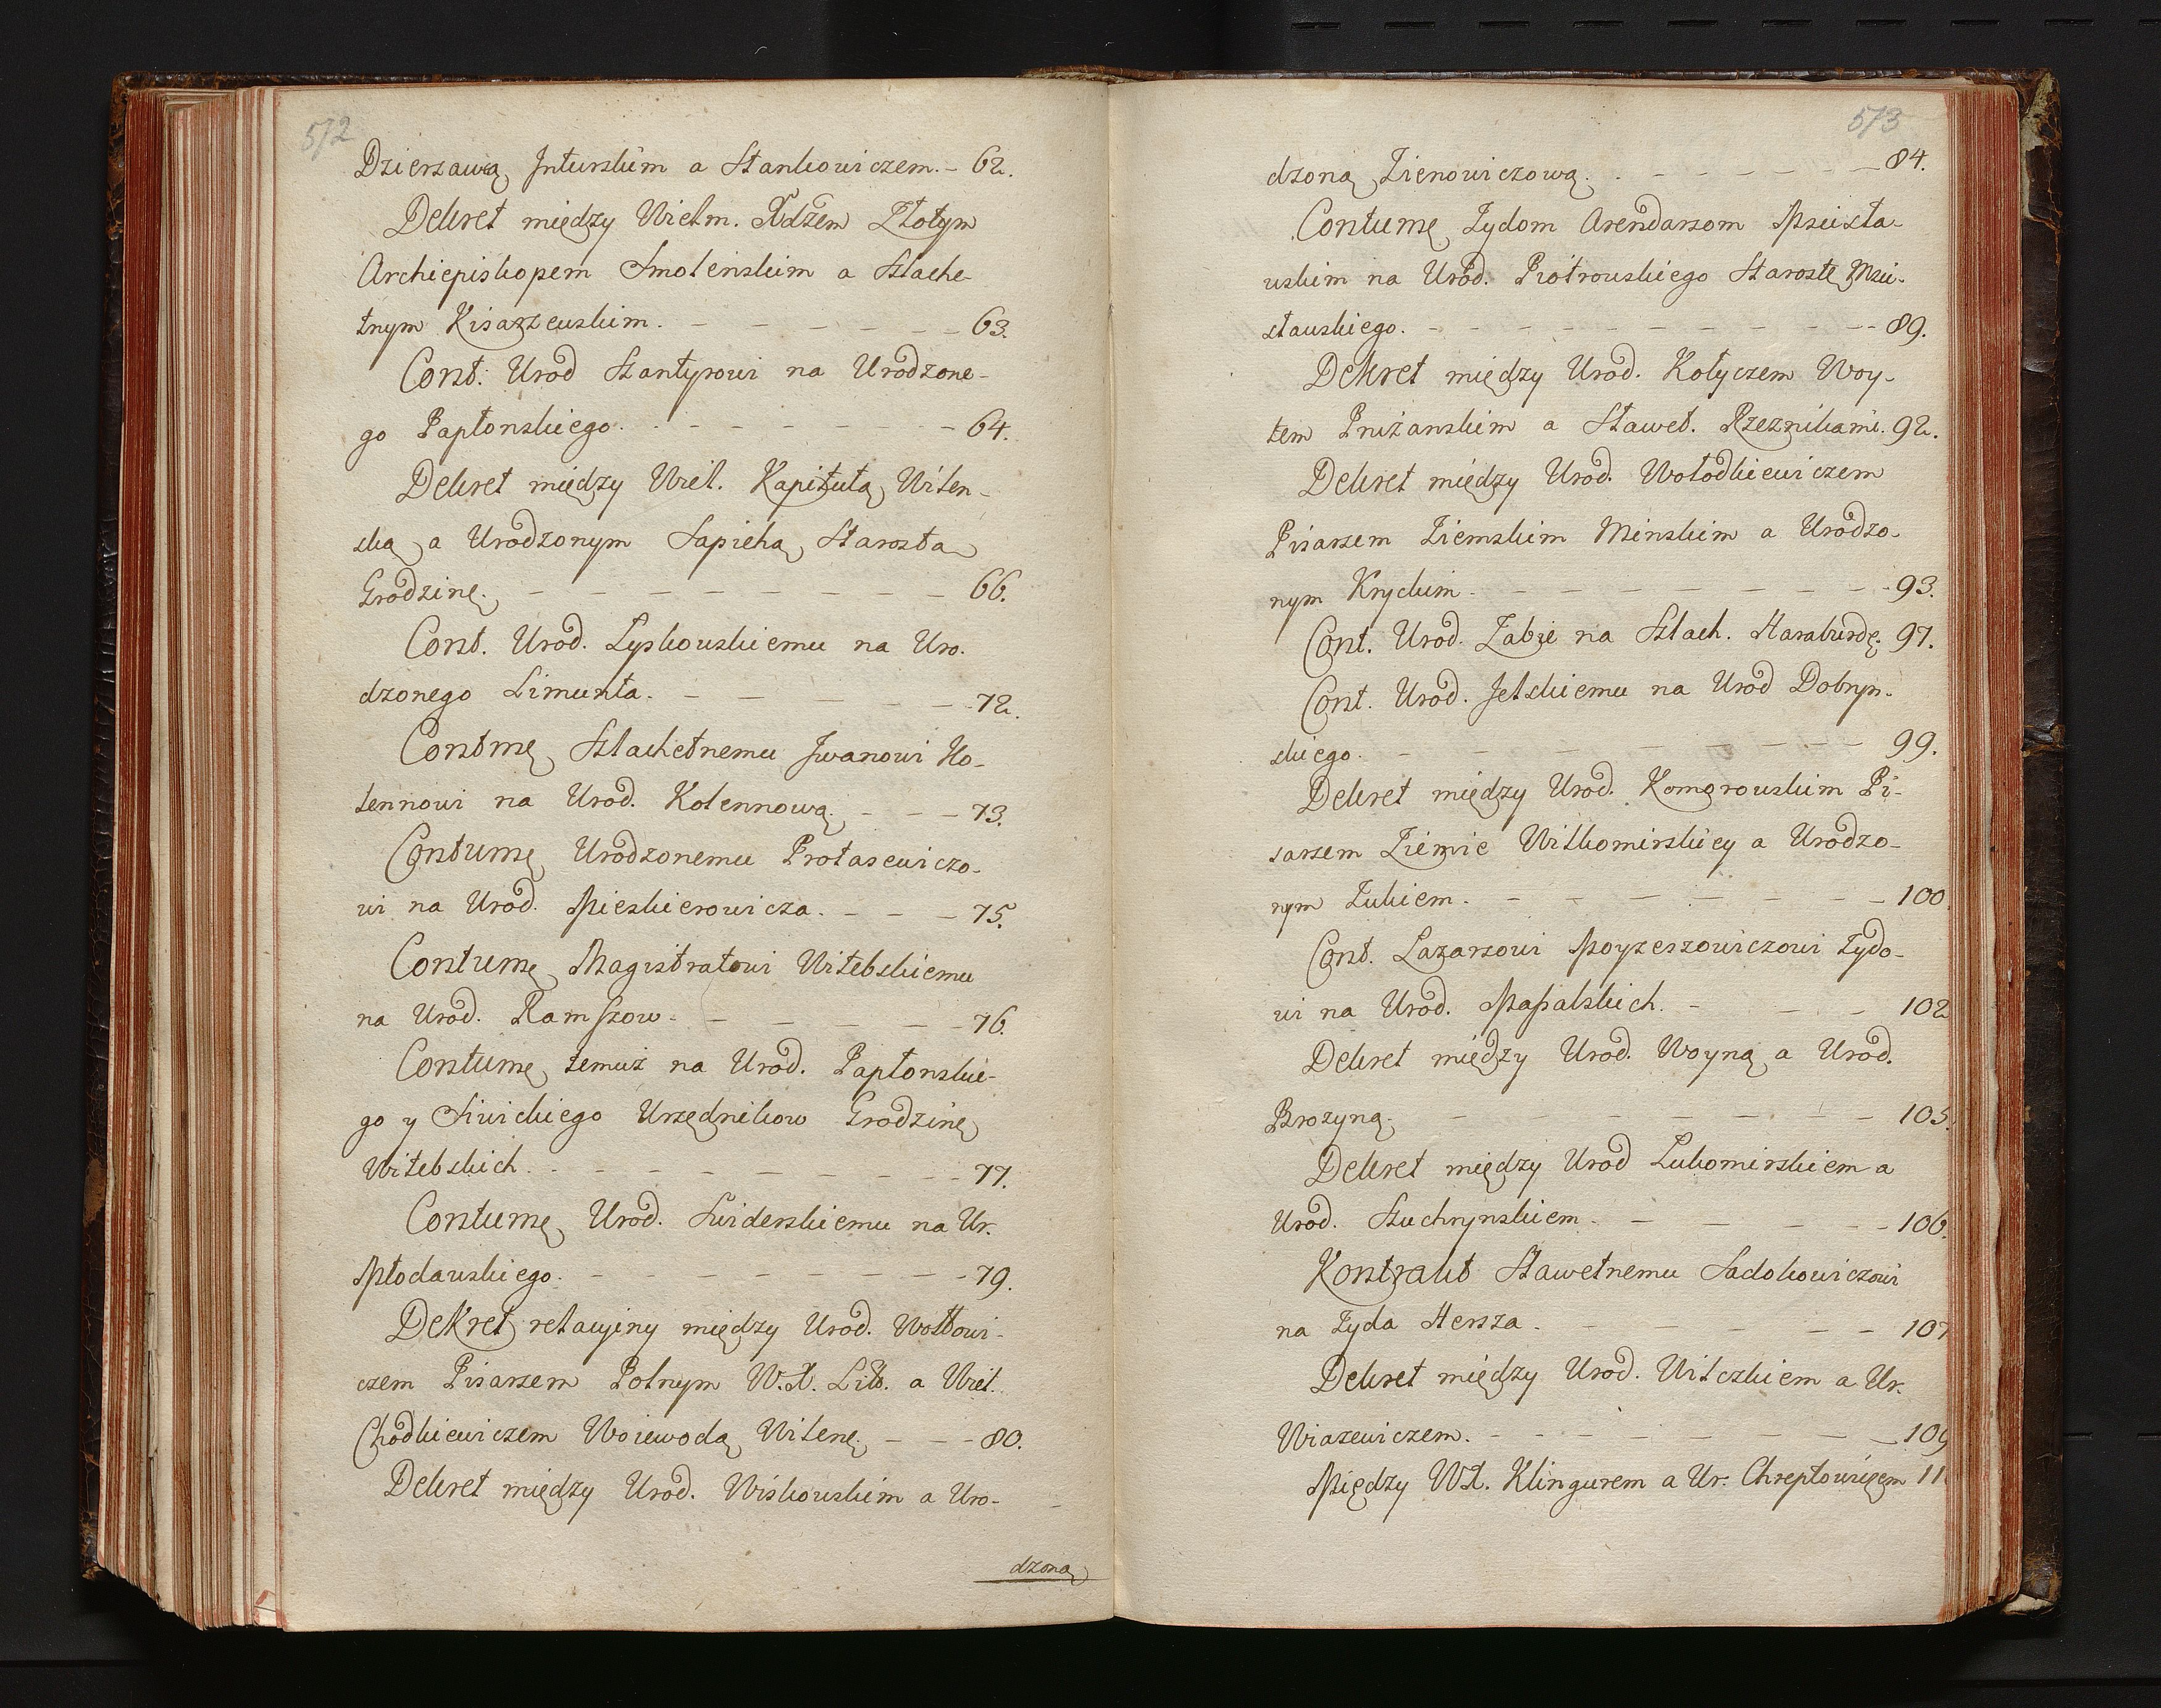 572
Dzierzawą Inturskim a Stankowiczem. - 62.
Dekret między Wielm. Xdzem Złotym
Archiepiskopem Smolenskim a Szlache-
tnym Kisarzewskim. - - - - - - 63.
Cont. Urod Szantyrowi na Urodzone-
go Paptonskiego. - - - - - - 64.
Dekret między Wiel. Kapitułą Wilen-
ską a Urodzonym Sapiehą Starostą
Grodzinę. - - - - - - - - 66.
Cont. Urod. Łyskowskiemu na Uro-
dzonego Limunta. - - - - - - 72.
Contmę Szlachetnemu Iwanowi Ko-
lennowi na Urod. Kolennową. - - - 73.
Contumę Urodzonemu Protasewiczo-
wi na Urod. Mieskierowicza. - - - 75.
Contumę Magistratowi Witebskiemu
na Urod. Ramszow. - - - - - 76.
Contumę temuż na Urod. Paptonskie-
go y Siwickiego Urzędnikow Grodzinę
Witebskich. - - - - - - - - 77.
Contumę Urod. Swiderskiemu na Ur.
Młodawskiego. - - - - - - - 79.
Dekret relacyiny między Urod. Wołłowi-
czem Pisarzem Polnym W. X. Litt. a Wiel.
Chodkiewiczem Woiewodą Wilenę. - - - 80.
Dekret między Urod. Wiskowskim a Uro-
dzoną
573
dzoną Zienowiczową. - - - - - - 84.
Contumę Żydom Arendarzom Mścisła-
wskim na Urod. Piotrowskiego Starostę Mści-
sławskiego. - - - - - - - - - 89.
Dekret między Urod. Kołyczem Woy-
tem Pniżanskim a Sławet. Rzeznikami. 92.
Dekret między Urod. Wołodkiewiczem
Pisarzem Ziemskim Minskim a Urodzo-
nym Kryckim. - - - - - - - - 93.
Cont. Urod. Zabie na Szlach. Haraburdę. 97.
Cont. Urod. Jelskiemu na Urod Dobryn-
skiego. - - - - - - - - 99.
Dekret między Urod. Komorowskim Pi-
sarzem Ziemię Wiłkomirskiey a Urodzo-
nym Zukiem. - - - - - - - 100.
Cont. Łazarzowi Moyzeszowiczowi Żydo-
wi na Urod. Massalskich. - - - 102
Dekret między Urod. Woyną a Urod.
Brozyną. - - - - - - - - 105.
Dekret między Urod Lukomirskiem a
Urod. Szuchrynskiem. - - - - - 106.
Kontrakt Sławetnemu Sadokowiczowi
na Żyda Hersza. - - - - - - 107
Dekret między Urod. Wilczkiem a Ur.
Wiazewiczem. - - - - - - - - 109
Między WX. Klingurem a Ur. Chreptowiczem 11